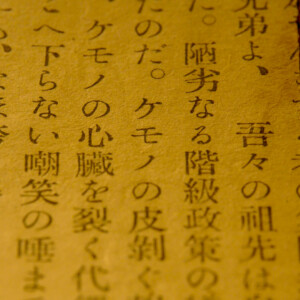 兄弟よ、 吾々の祖先は
た。陋劣なる階級政策の
たのだ。ケモノの皮剝ぐ
、ケモノの心臓を裂く代
こへ下らない嘲笑の唾ま